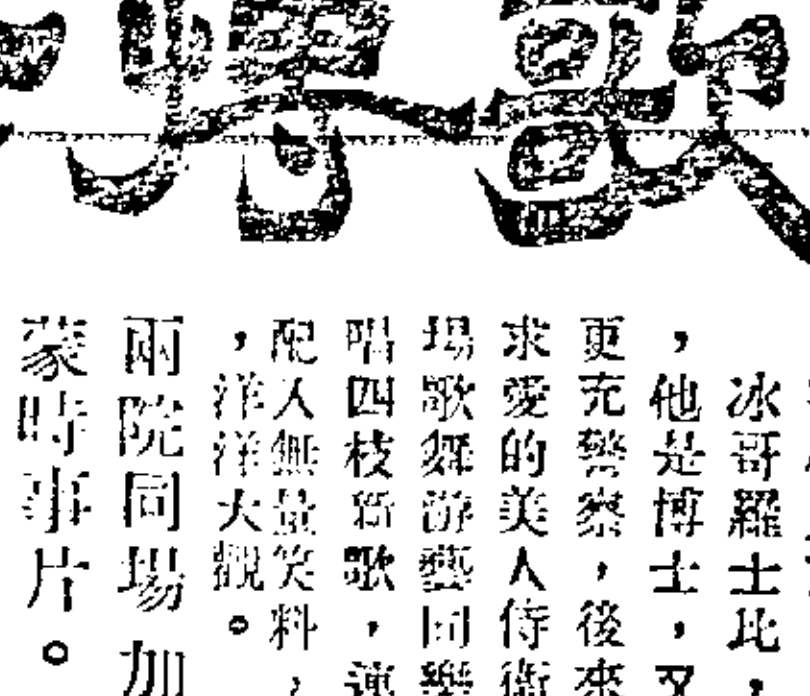 冰哥羅士比，
，他是博士，又
更充警察，後來
求愛的美人侍衛
場歌舞游藝同樂
唱四枝新歌，連
配入無量笑料，
，洋洋大觀。
兩院同場加
蒙時事片。